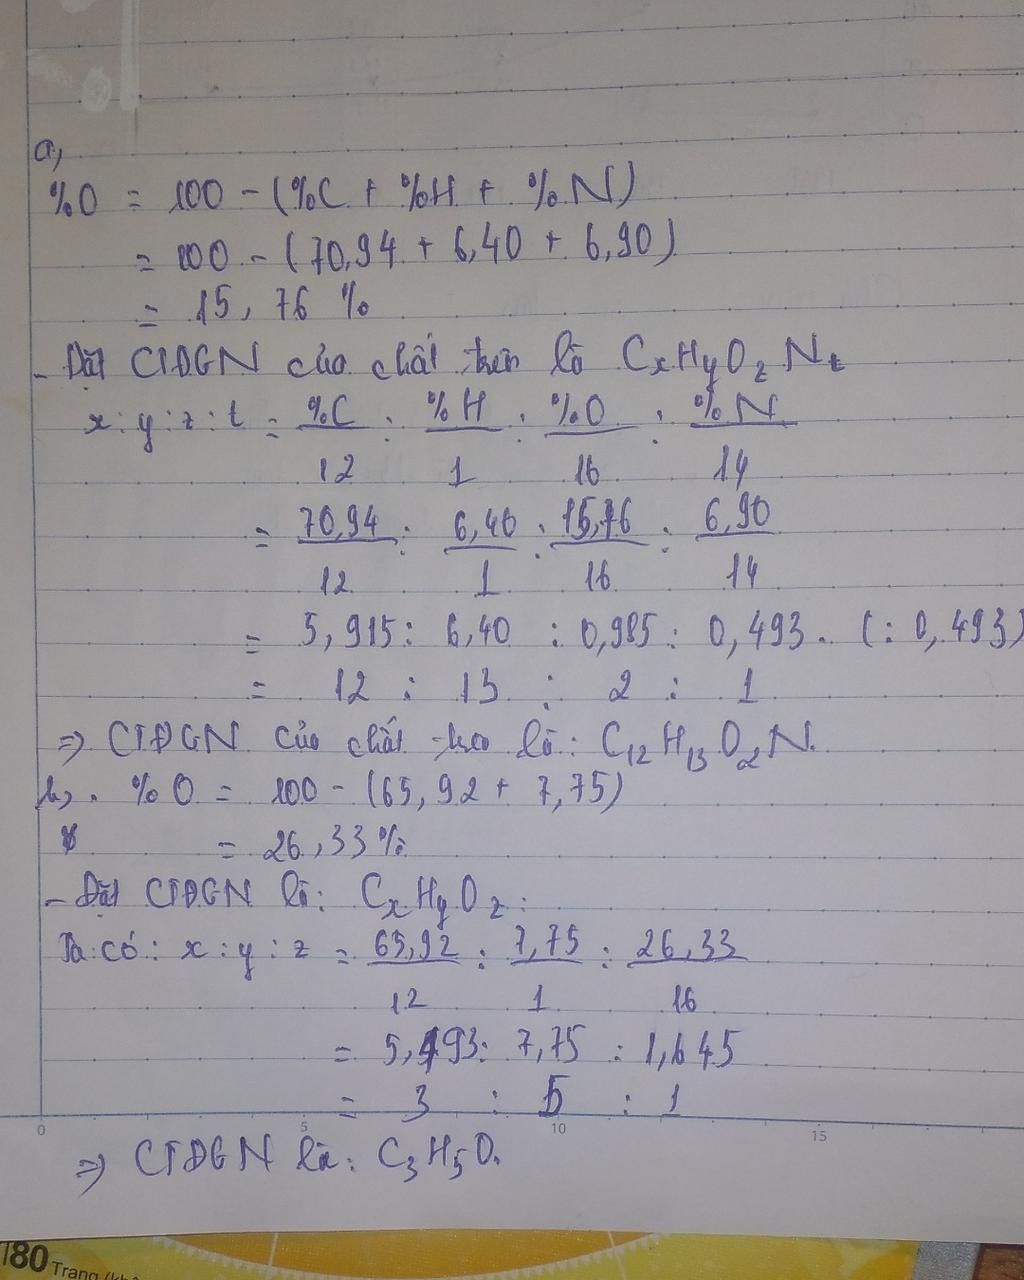 a,
%O = 100 - (%C + %H + %N)
= 100 - (70,94 + 6,40 + 6,90)
= 15,76 %
- Đặt CTĐGN của chất trên là CxHyOzNt
x : y : z : t = %C/12 : %H/1 : %O/16 : %N/14
= 70,94/12 : 6,40/1 : 15,76/16 : 6,90/14
= 5,915 : 6,40 : 0,985 : 0,493. (: 0,493)
= 12 : 13 : 2 : 1
=> CTĐGN của chất trên là: C12H13O2N.
b, . %O = 100 - (65,92 + 7,75)
= 26,33%
- Đặt CTĐGN là: CxHyOz:
Ta có: x : y : z = 65,92/12 : 7,75/1 : 26,33/16
= 5,493 : 7,75 : 1,645
= 3 : 5 : 1
=> CTĐGN là: C3H5O.
0 5 10 15
180 Trang